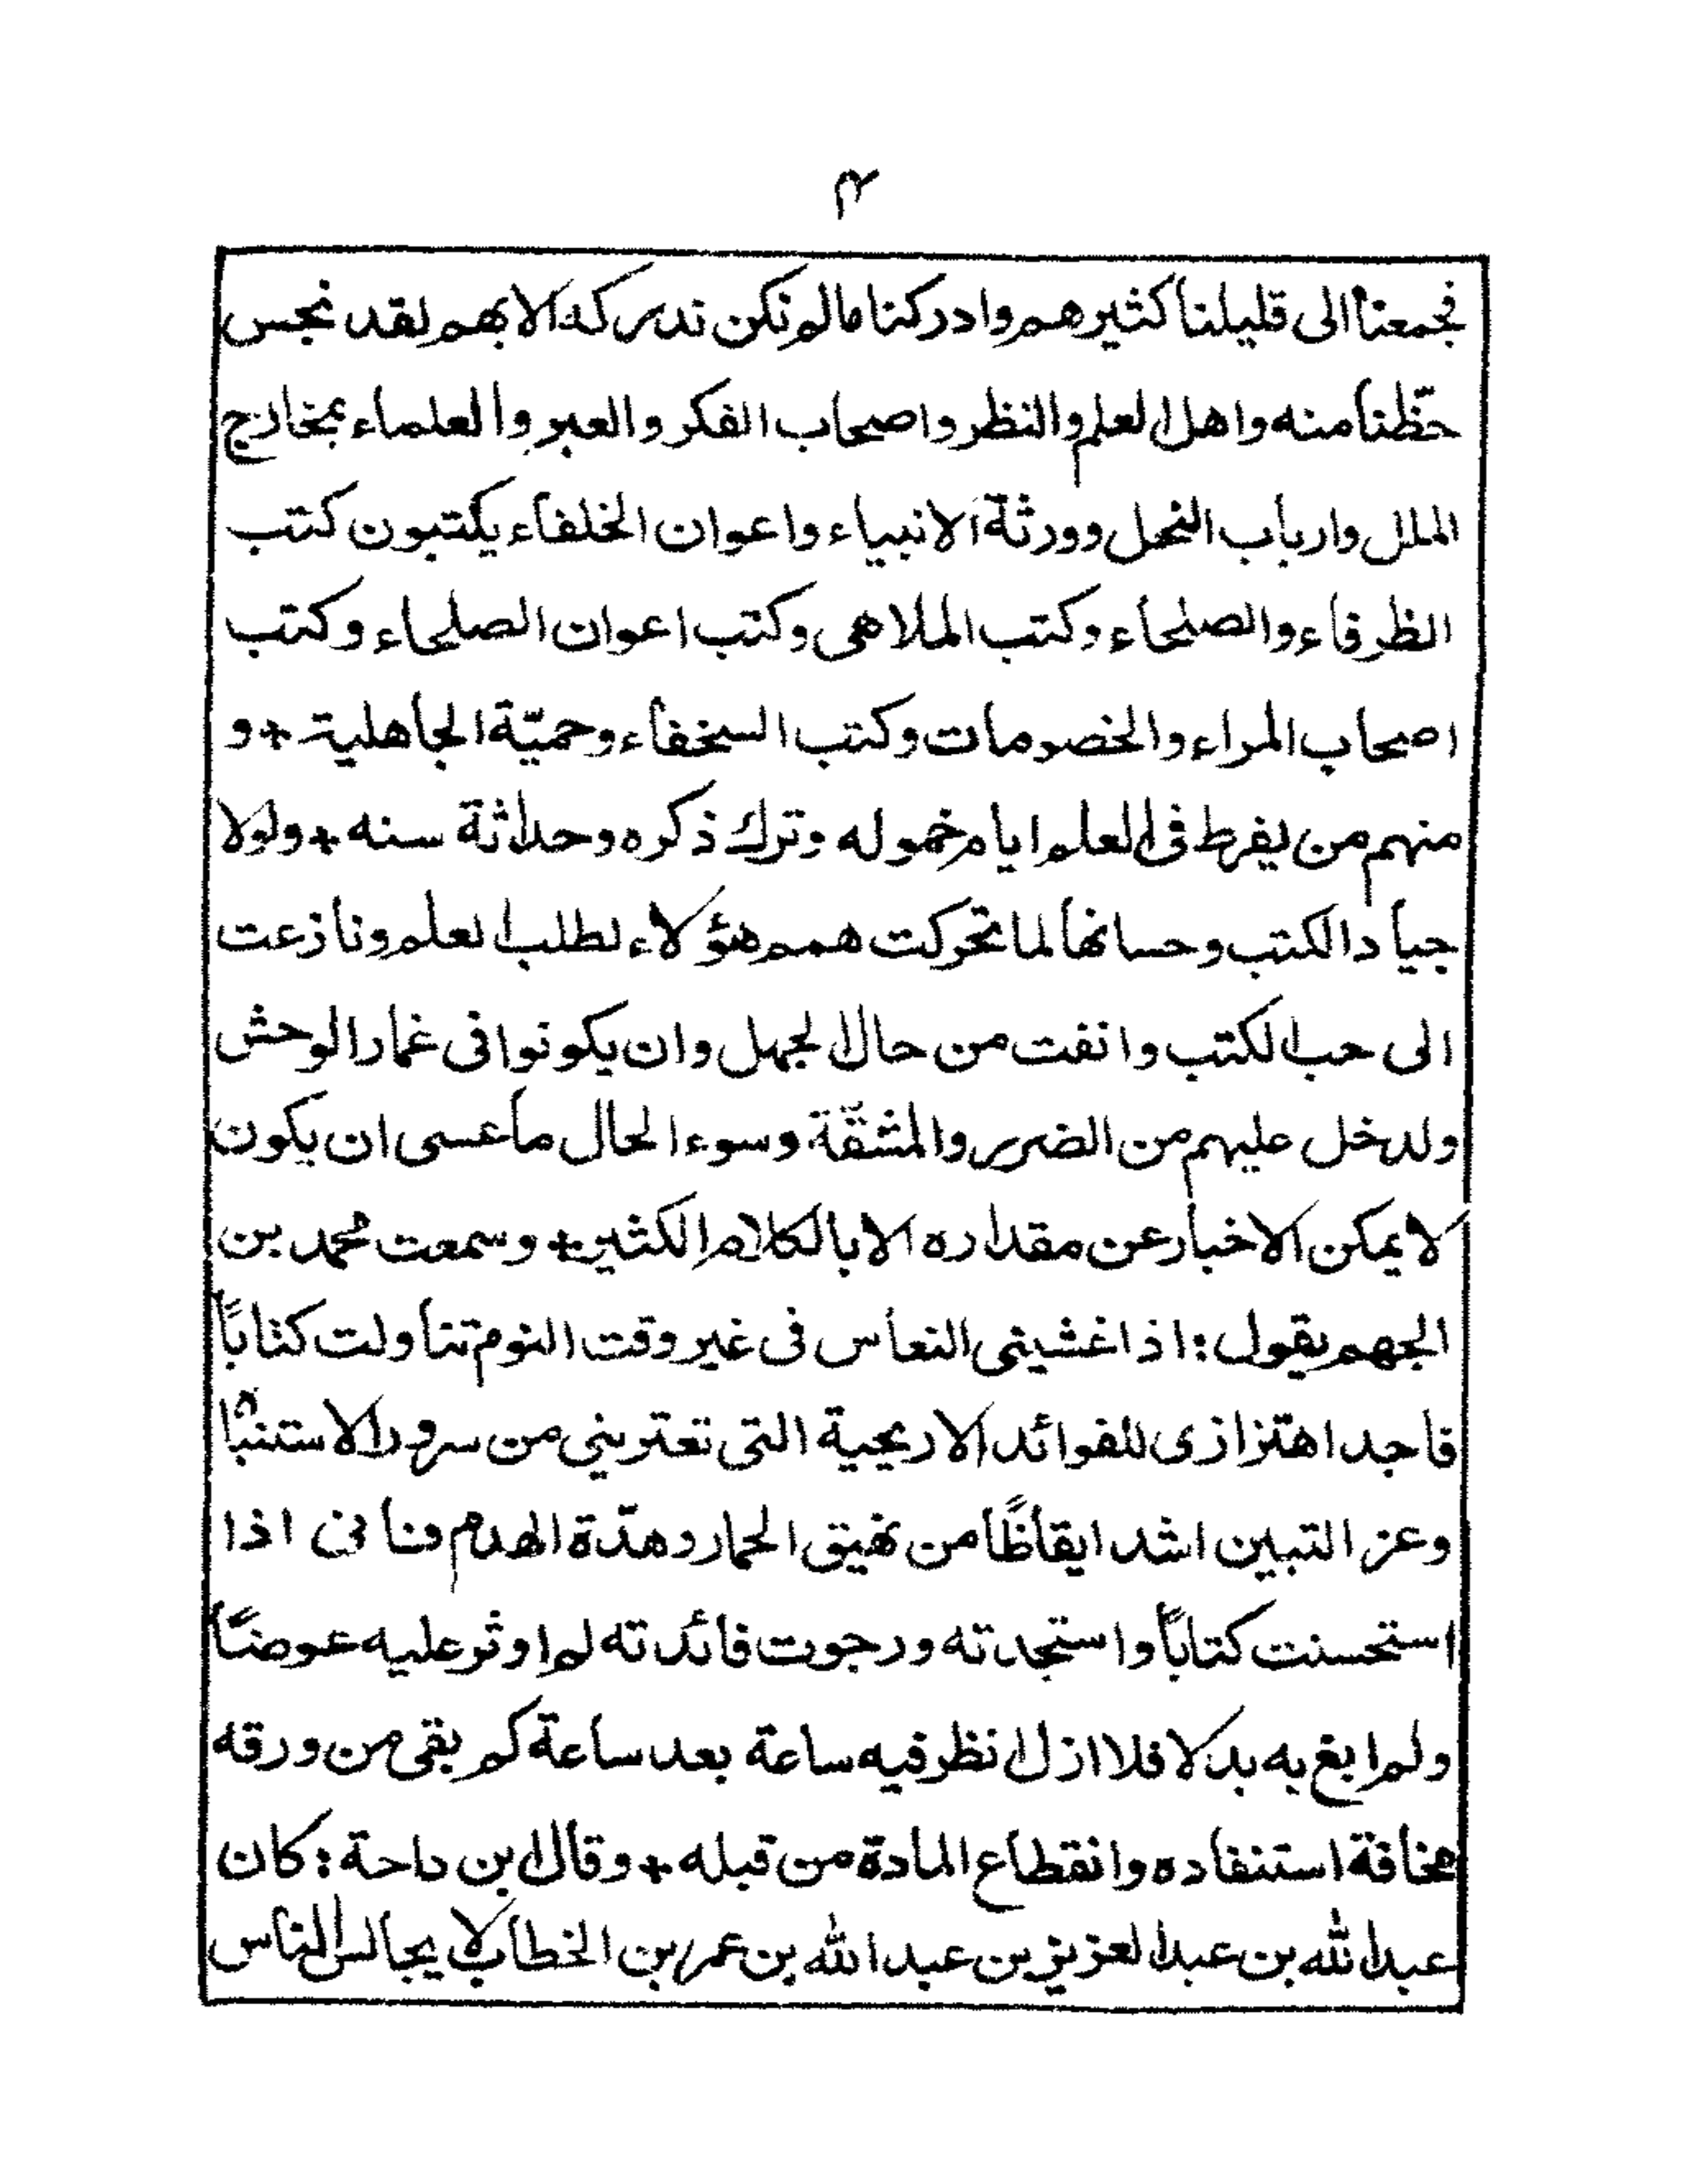 ٣
فجمعنا الى قليلنا كثيرهم وادركنا مالم نكن ندركه الا بهم لقد نجس
حظّنا منه واهل العلم والنظر واصحاب الفكر والعبر والعلماء بمخارج
الملل وارباب النحل وورثة الانبياء واعوان الخلفاء يكتبون كتب
الظرفاء والصلحاء وكتب الملاهى وكتب اعوان الصلحاء وكتب
اصحاب المراء والخصومات وكتب السخفاء وحميّة الجاهلية + و
منهم من يفرط فى العلم ايام خموله وترك ذكره وحداثة سنه + ولولا
جياد الكتب وحسانها لما تحركت همم هؤلاء لطلب العلم ونازعت
الى حب الكتب وانفت من حال الجهل وان يكونوا فى غمار الوحش
ولدخل عليهم من الضرر والمشقّة وسوء الحال ما عسى ان يكون
لا يمكن الاخبار عن مقداره الا بالكلام الكثير + وسمعت محمد بن
الجهم يقول : اذا غشينى النعاس فى غير وقت النوم تناولت كتاباً
فاجد اهتزازى للفوائد الاريحية التى تعترينى من سرور الاستنباه
وعز التبين اشد ايقاظاً من نهيق الحمار وهدّة الهدم فانى اذا
استحسنت كتاباً واستجدته ورجوت فائدته لم اوثر عليه عوضاً
ولم ابغ به بدلا فلا ازل انظر فيه ساعة بعد ساعة كم بقى من ورقه
مخافة استنفاده وانقطاع المادة من قبله + وقال ابن داحة : كان
عبد الله بن عبد العزيز بن عبد الله بن عمر بن الخطاب لا يجالس الناس